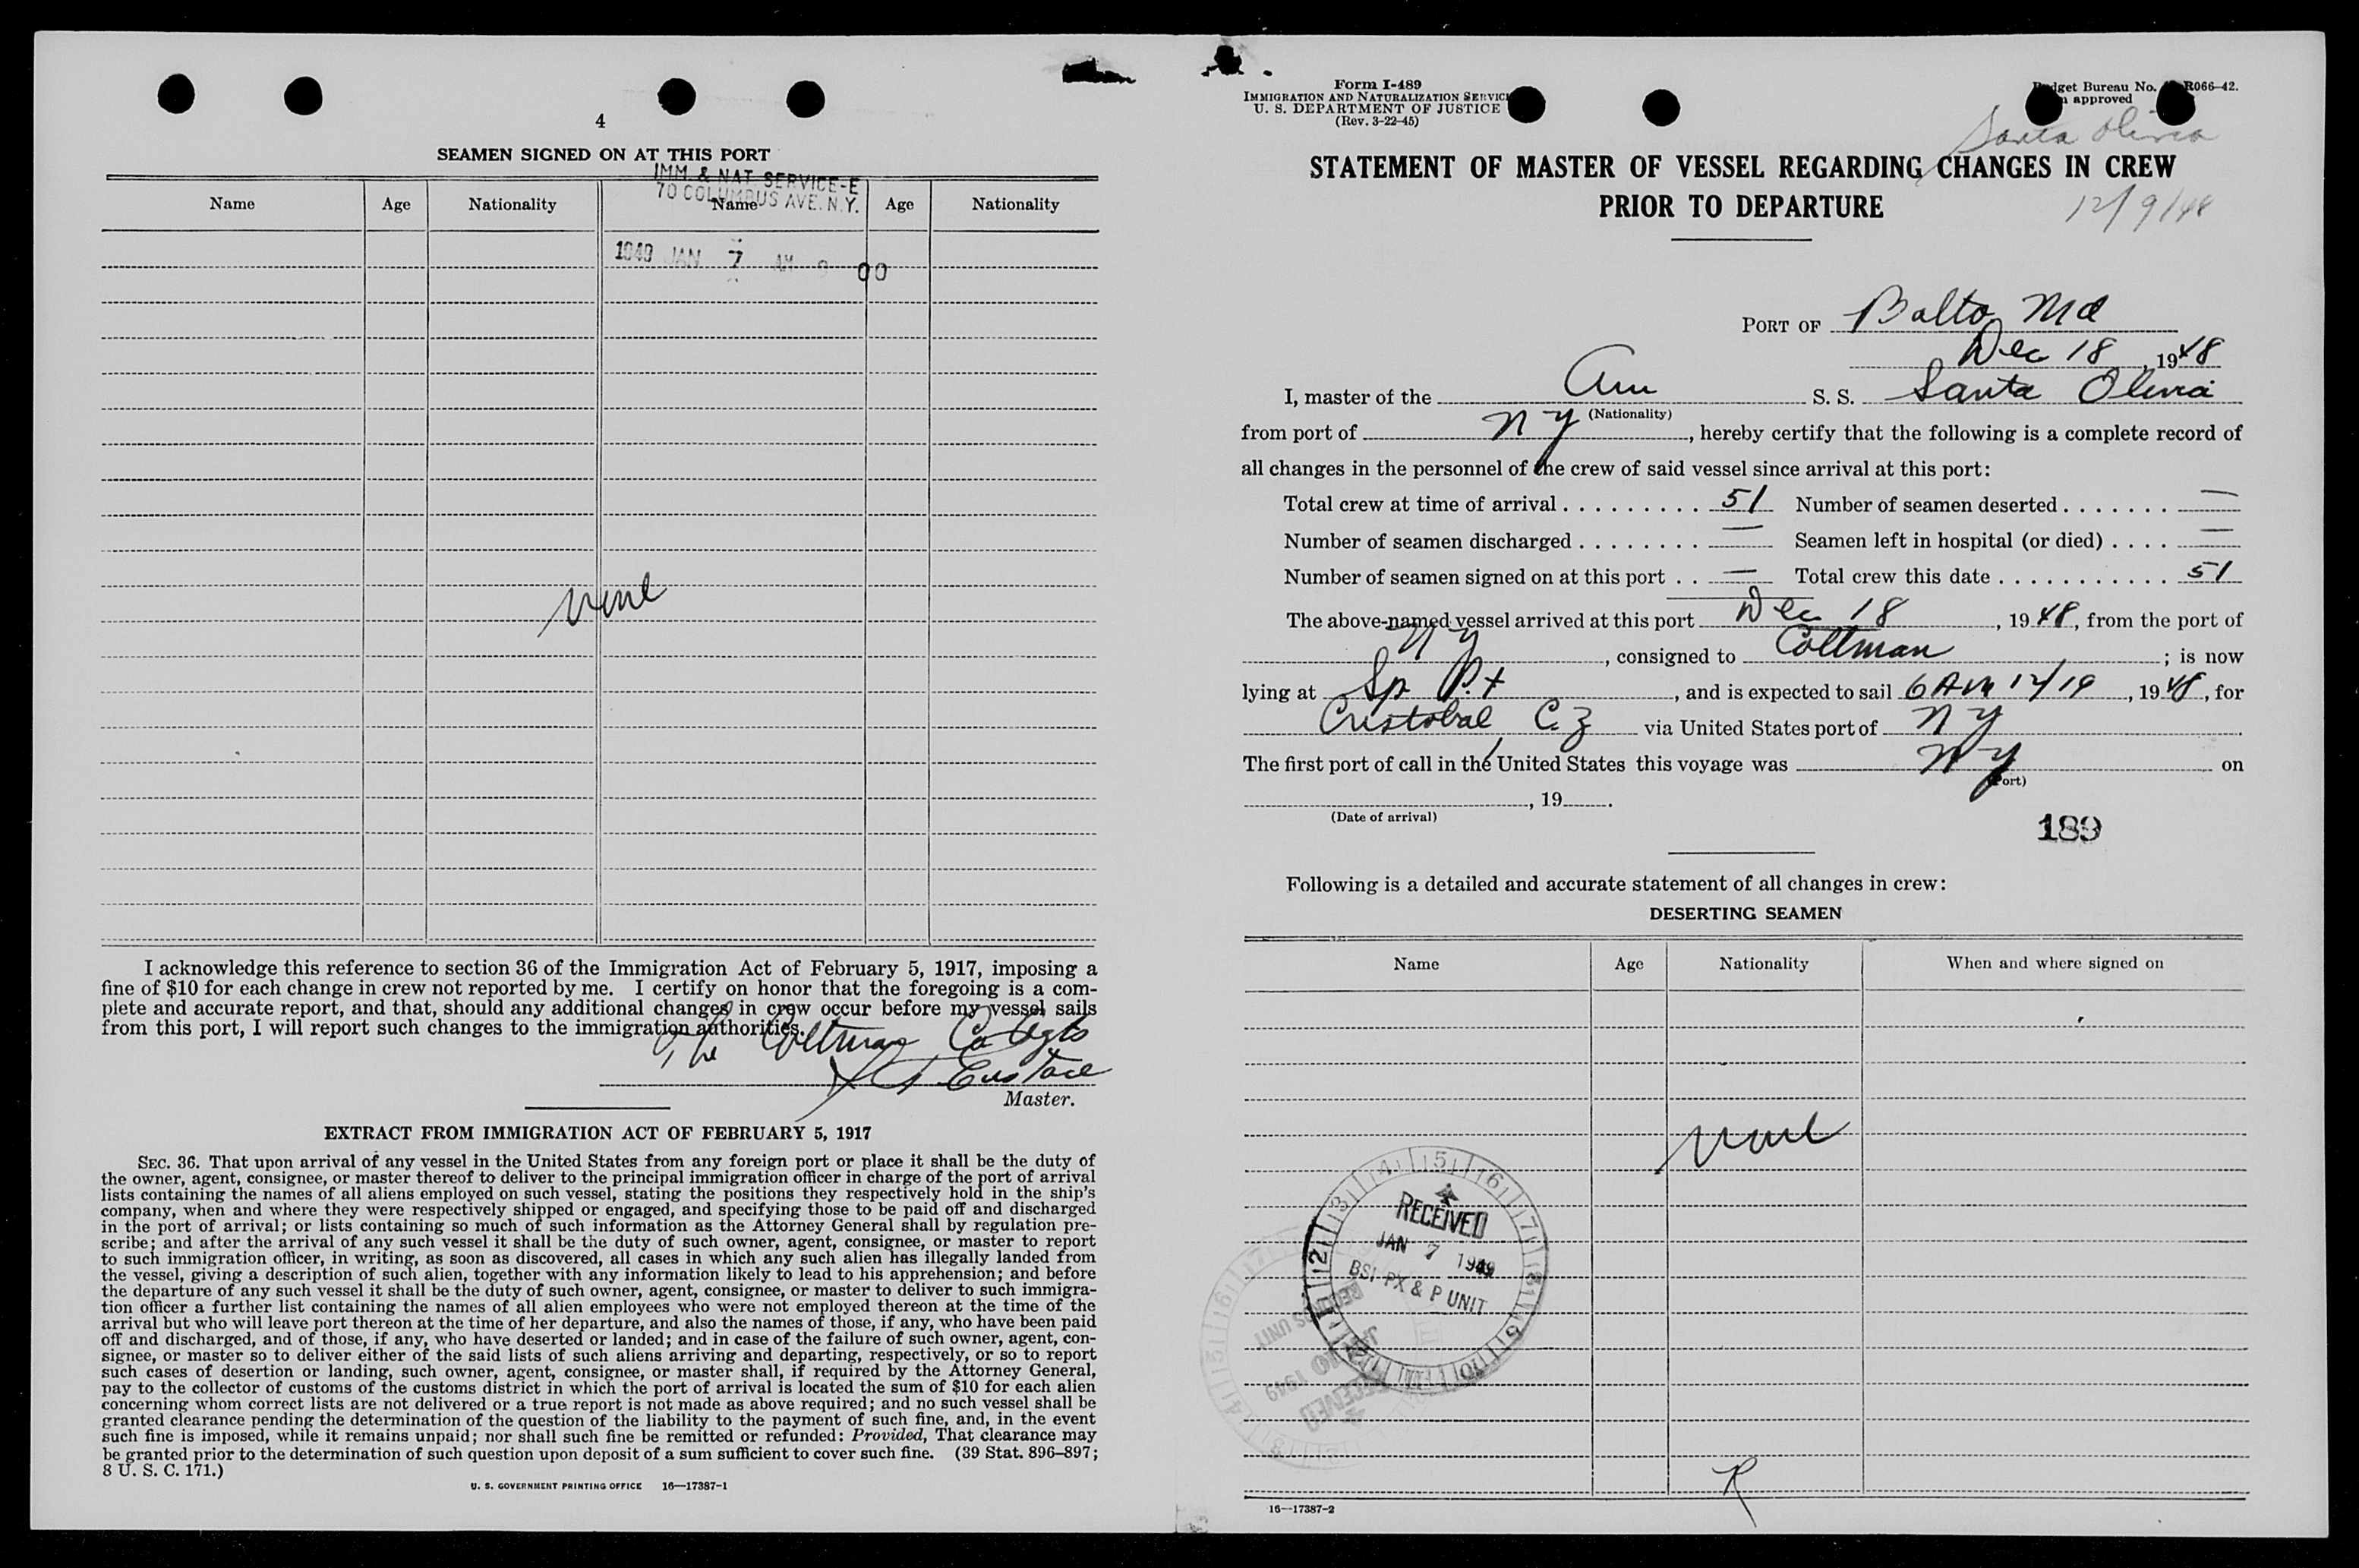 4
SEAMEN SIGNED ON AT THIS PORT
IMM. & NAT. SERVICE-E
70 COLUMBUS AVE. N.Y.
Name Age Nationality Name Age Nationality
1949 JAN 7 AM 9 00
None
I acknowledge this reference to section 36 of the Immigration Act of February 5, 1917, imposing a
fine of $10 for each change in crew not reported by me. I certify on honor that the foregoing is a com-
plete and accurate report, and that, should any additional changes in crew occur before my vessel sails
from this port, I will report such changes to the immigration authorities.
The Coltman Co Agts
Eustace
Master.
EXTRACT FROM IMMIGRATION ACT OF FEBRUARY 5, 1917
SEC. 36. That upon arrival of any vessel in the United States from any foreign port or place it shall be the duty of
the owner, agent, consignee, or master thereof to deliver to the principal immigration officer in charge of the port of arrival
lists containing the names of all aliens employed on such vessel, stating the positions they respectively hold in the ship's
company, when and where they were respectively shipped or engaged, and specifying those to be paid off and discharged
in the port of arrival; or lists containing so much of such information as the Attorney General shall by regulation pre-
scribe; and after the arrival of any such vessel it shall be the duty of such owner, agent, consignee, or master to report
to such immigration officer, in writing, as soon as discovered, all cases in which any such alien has illegally landed from
the vessel, giving a description of such alien, together with any information likely to lead to his apprehension; and before
the departure of any such vessel it shall be the duty of such owner, agent, consignee, or master to deliver to such immigra-
tion officer a further list containing the names of all alien employees who were not employed thereon at the time of the
arrival but who will leave port thereon at the time of her departure, and also the names of those, if any, who have been paid
off and discharged, and of those, if any, who have deserted or landed; and in case of the failure of such owner, agent, con-
signee, or master so to deliver either of the said lists of such aliens arriving and departing, respectively, or so to report
such cases of desertion or landing, such owner, agent, consignee, or master shall, if required by the Attorney General,
pay to the collector of customs of the customs district in which the port of arrival is located the sum of $10 for each alien
concerning whom correct lists are not delivered or a true report is not made as above required; and no such vessel shall be
granted clearance pending the determination of the question of the liability to the payment of such fine, and, in the event
such fine is imposed, while it remains unpaid; nor shall such fine be remitted or refunded: Provided, That clearance may
be granted prior to the determination of such question upon deposit of a sum sufficient to cover such fine. (39 Stat. 896–897;
8 U. S. C. 171.)
U. S. GOVERNMENT PRINTING OFFICE 16—17387-1
Form I-489
IMMIGRATION AND NATURALIZATION SERVICE
U. S. DEPARTMENT OF JUSTICE
(Rev. 3-22-45)
Budget Bureau No. R066-42.
approved
Santa Olivia
STATEMENT OF MASTER OF VESSEL REGARDING CHANGES IN CREW
PRIOR TO DEPARTURE
12/9/48
PORT OF Balto, Md
Dec 18, 1948
I, master of the Am S. S. Santa Olivia
(Nationality)
from port of N Y, hereby certify that the following is a complete record of
all changes in the personnel of the crew of said vessel since arrival at this port:
Total crew at time of arrival . . . . . . . . . 51 Number of seamen deserted . . . . . . . —
Number of seamen discharged . . . . . . . . — Seamen left in hospital (or died) . . . . —
Number of seamen signed on at this port . . — Total crew this date . . . . . . . . . . . . 51
The above-named vessel arrived at this port Dec 18, 1948, from the port of
N Y, consigned to Coltman; is now
lying at Sp. Pt, and is expected to sail 6 AM 12/19, 1948, for
Cristobal, C.Z via United States port of N Y
The first port of call in the United States this voyage was N Y on
(Port)
, 19 .
(Date of arrival)
189
Following is a detailed and accurate statement of all changes in crew:
DESERTING SEAMEN
Name Age Nationality When and where signed on
None
RECEIVED
JAN 7 1949
BSI PX & P UNIT
RECEIVED
JAN 10 1949
R
16—17387-2